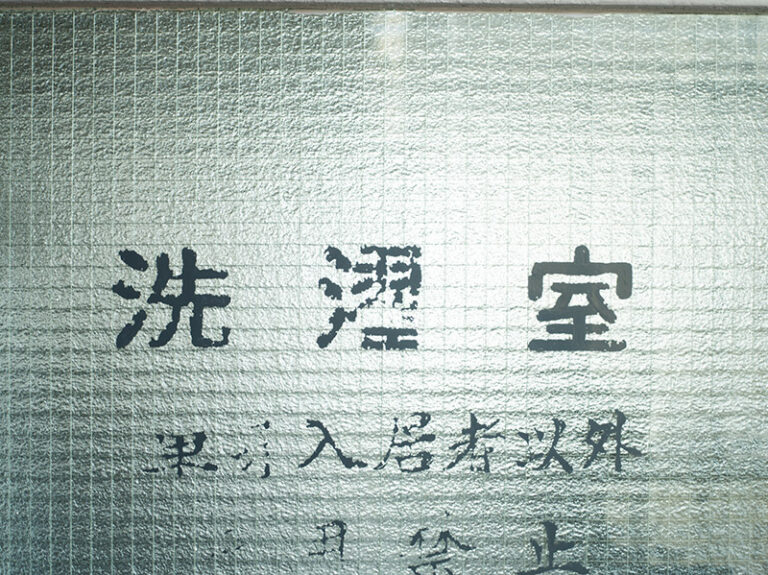 洗濯室
入居者以外
禁止